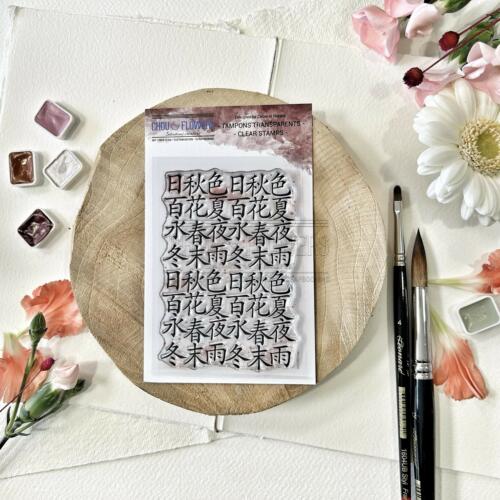 CHOU & FLOWERS
- TAMPONS TRANSPARENTS -
- CLEAR STAMPS -
日秋色日秋色
百花夏百花夏
水春夜水春夜
冬末雨冬末雨
日秋色日秋色
百花夏百花夏
水春夜水春夜
冬末雨冬末雨